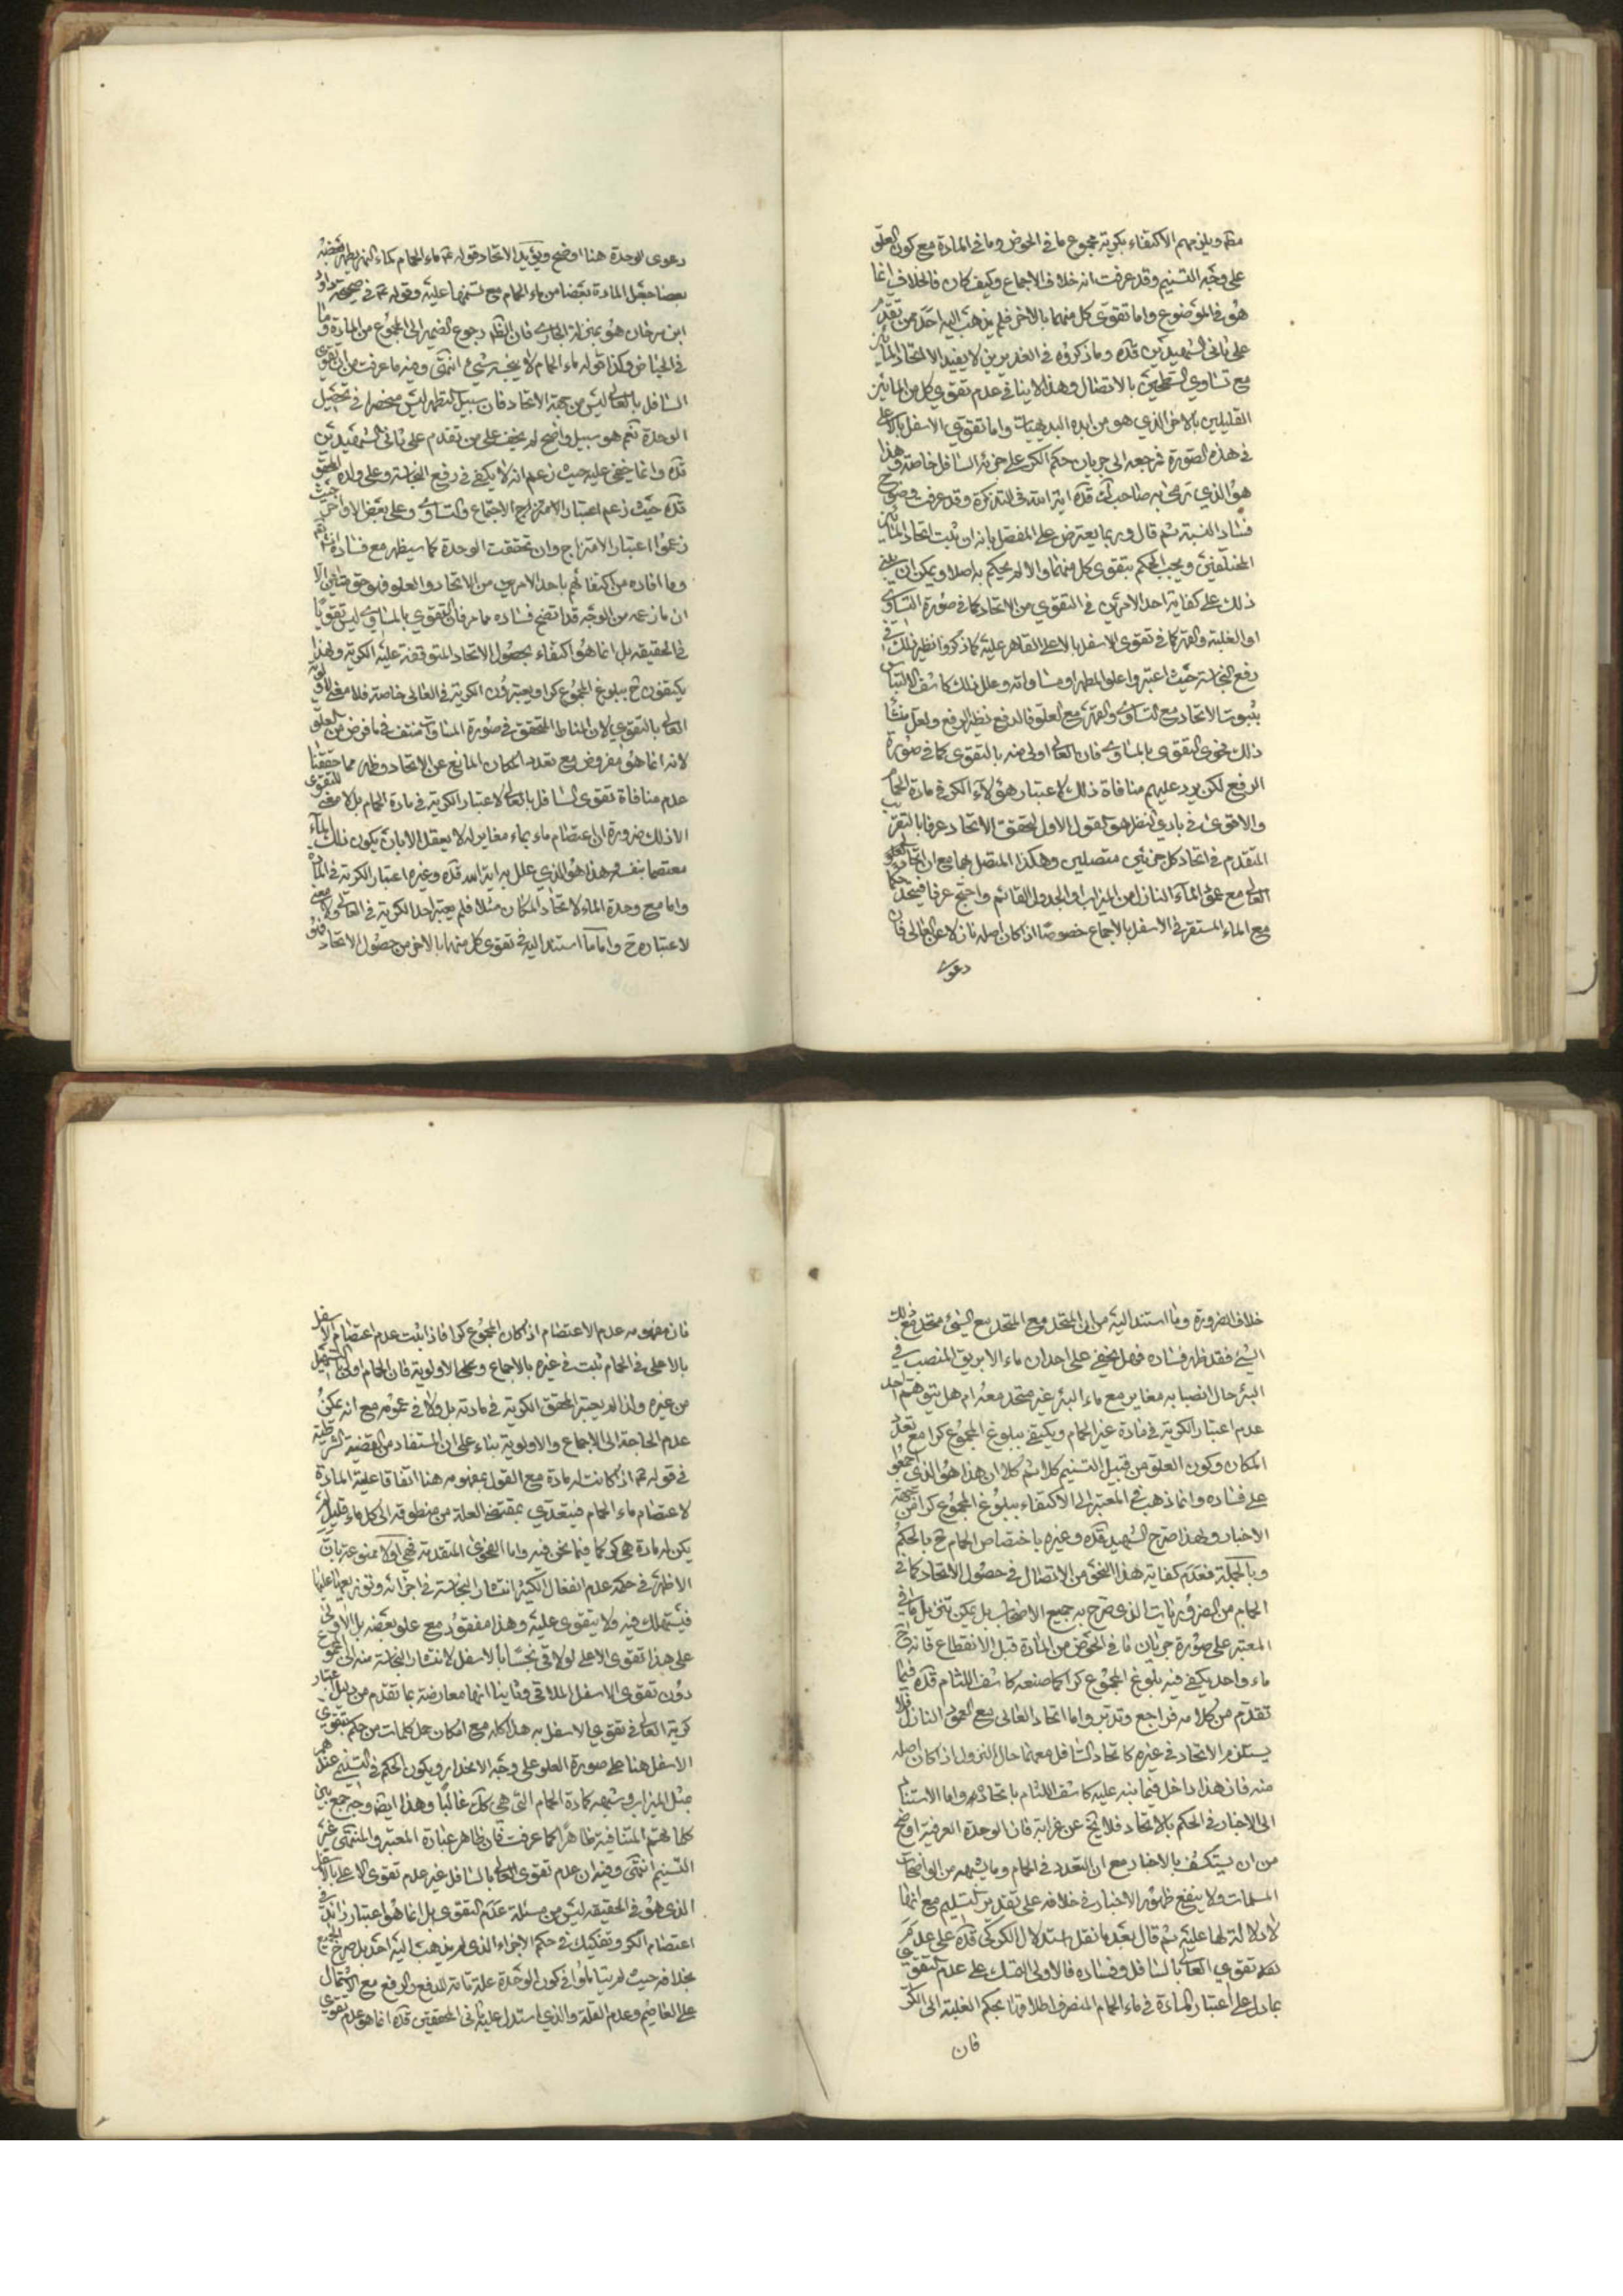 مطه ويلزمهم الاكتفاء بكرية مجموع ما في الحوض وما في المادة مع كون العلو
على وجه التسنيم وقد عرفت انه خلاف الاجماع وكيف كان فالخلاف انما
هو في الموضوع واما تقوى كل منهما بالاخر فلم يذهب اليه احد ممن تقدم
على ثاني الشهيدين قده وما ذكروه في الغديرين لا يفيد الا اتحاد المائين
مع تساوي السطحين بالاتصال وهذا لا ينافي عدم تقوي كل من المائين
القليلين بالاخر الذي هو من ابده البديهيات واما تقوي الاسفل بالاعلى
في هذه الصورة فمرجعه الى جريان حكم الكر على جزئه السافل خاصة وهذا
هو الذي صرح به صاحب قده اية الله في التذكرة وقد عرفت وضوح
فساد النسبة ثم قال وربما يعترض على المفصل بانه ان ثبت اتحاد المائين
المختلفين وجب الحكم بتقوى كل منهما والا لم يحكم به اصلا ويمكن ان يبنى
ذلك على كفاية احد الامرين في التقوي من الاتحاد كما في صورة التساوي
او الغلبة والقهر كما في تقوى الاسفل بالاعلى القاهر عليه كما ذكروا نظير ذلك في
رفع النجاسة حيث اعتبروا علو المطهر او مساواته وعلل ذلك كاشف الالتباس
بثبوت الاتحاد مع التساوي والقهر مع العلو فالدفع نظير الرفع ولعل منشأ
ذلك فحوى التقوى بالمساوي فان العالى اولى منه بالتقوى كما في صورة
الرفع لكن يرد عليهم منافاة ذلك لاعتبار هؤلاء الكر في مادة الحمام
والاقوى في بادي النظر هو القول الاول لتحقق الاتحاد عرفا بالتقريب
المتقدم في اتحاد كل جزئي متصلين وهكذا المتصل بهما مع ان اتحاد
العالى مع عمود الماء النازل من الميزاب او الجدول القائم واضح عرفا فيتحد حكما
مع الماء المستقر في الاسفل بالاجماع خصوصا اذا كان اصله نازلا عن العالى فان
دعوى
دعوى الوحدة هنا اوضح ويؤيد الاتحاد قوله ع ماء الحمام كماء النهر يطهر بعضه
بعضا حيث جعل المادة بعضا من ماء الحمام مع تسنمها عليه وقوله ع في صحيحة داود
ابن سرحان هو بمنزلة الجاري فان الظ رجوع الضمير الى المجموع من المادة وما
في الحياض وكذا قوله ماء الحمام لا ينجسه شيء انتهى وفيه ما عرفت من ان تقوى
السافل بالعالى ليس من جهة الاتحاد فان سبيل التطهر ليس منحصرا في تحصيل
الوحدة نعم هو سبيل واضح لم يخف على من تقدم على ثاني الشهيدين
قده وانما خفي عليه حيث زعم انه لا يكفي في رفع النجاسة وعلى ولده المحقق
قده حيث زعم اعتبار الامتزاج الاجتماع والتساوي وعلى بعض الاواخر حيث
زعموا اعتبار الامتزاج وان تحققت الوحدة كما سيظهر مع فساده انش تع
وما افاده من اكتفائهم باحد الامرين من الاتحاد والعلو فهو حق متين الا
ان ما زعمه من الوجه قد اتضح فساده مما مر فان التقوي بالمساوي ليس تقويا
في الحقيقة بل انما هو اكتفاء بحصول الاتحاد المتوقفة عليه الكرية ولهذا
يكتفون ح ببلوغ المجموع كرا ويعتبرون الكرية في العالى خاصة فلا معنى لاولوية
العالى بالتقوي لان المناط المتحقق في صورة المساوات منتف في ما فرض من العلو
لانه انما هو مفروض مع تعدد المكان المانع عن الاتحاد وظهر مما حققنا
عدم منافاة تقوى السافل بالعالى لاعتبار الكرية في مادة الحمام بل لا معنى للتقوى
الا ذلك ضرورة ان اعتصام ماء بماء مغاير له لا يعقل الا بان يكون ذلك الماء
معتصما بنفسه وهذا هو الذي علل به اية الله قده وغيره اعتبار الكرية في المادة
واما مع وحدة الماء لاتحاد المكان مثلا فلم يعتبر احد الكرية في العالى ولا معنى
لاعتباره ح واما ما استند اليه في تقوى كل منهما بالاخر من حصول الاتحاد فهو
خلاف الضرورة وما استند اليه من ان المتحد مع المتحد مع الشيء متحد مع ذلك
الشيء فقد ظهر فساده فهل يخفى على احد ان ماء الابريق المنصب في
البئر حال انصبابه مغاير مع ماء البئر غير متحد معه ام هل يتوهم احد
عدم اعتبار الكرية في مادة غير الحمام ويكتفي ببلوغ المجموع كرا مع تعدد
المكان وكون العلو من قبيل التسنيم كلا ثم كلا ان هذا هو الذي اجمعوا
على فساده وانما ذهب في المعتبر الى الاكتفاء ببلوغ المجموع كرا من جهة
الاخبار ولهذا صرح الشهيد قده وغيره باختصاص الحمام ح بالحكم
وبالجملة فعدم كفاية هذا النحو من الاتصال في حصول الاتحاد كما في
الحمام من الضروريات الذي صرح به جميع الاصحاب بل يمكن تنزيل ما في
المعتبر على صورة جريان ما في الحوض من المادة قبل الانقطاع فانه ح
ماء واحد يكفي فيه بلوغ المجموع كرا كما صنعه كاشف اللثام قده فيما
تقدم من كلامه فراجع وتدبر واما اتحاد العالى مع العمود النازل فلا
يستلزم الاتحاد في غيره كاتحاد السافل معهما حال النزول اذا كان اصله
منه فان هذا داخل فيما نبه عليه كاشف اللثام باتحاده واما الاستناد
الى الاخبار في الحكم بالاتحاد فلا يخ عن غرابة فان الوحدة العرفية اوضح
من ان يستكشف بالاخبار مع ان التعدد في الحمام وما يشبهه من الواضحات
المسلمات ولا ينفع ظهور الاخبار في خلافه على تقدير التسليم مع انها
لا دلالة لها عليه ثم قال بعد ما نقل استدلال الكركي قده على عدم
تقوي العالى بالسافل وفساده فالاولى التمسك على عدم التقوى
بما دل على اعتبار المادة في ماء الحمام المنصرف اطلاقها بحكم الغلبة الى الكر
فان
فان مفهومه عدم الاعتصام اذا كان المجموع كرا فاذا ثبت عدم اعتصام الاسفل
بالاعلى في الحمام ثبت في غيره بالاجماع وبحكم الاولوية فان الحمام اولى بالتسهيل
من غيره ولذا لم يعتبر المحقق الكرية في مادته بل ولا في عمومه مع انه يمكن
عدم الحاجة الى الاجماع والاولوية بناء على ان المستفاد من القضية الشرطية
في قوله ع اذا كانت له مادة مع القول بمفهومه هنا اتفاقا علية المادة
لاعتصام ماء الحمام فيتعدى بمقتضى العلة من منطوقه الى كل ماء قليل لم
يكن له مادة هي كر كما فيما نحن فيه واما الفحوى المتقدمة فهي اولا ممنوعة بان
الاظهر في حكمة عدم انفعال الكثير انتشار النجاسة في اجزائه وتوزيعها عليها
فيستهلك فيه ولا يتقوى عليه وهذا مفقود مع علو بعضه بل الاولى
على هذا تقوى الاعلى لو لاقى نجسا بالاسفل لانتشار النجاسة منه الى
دون تقوى الاسفل الملاقي وثانيا انها معارضة بما تقدم من دليل اعتبار
كرية العالى في تقوي الاسفل به هذا كله مع امكان حمل كلمات من حكم بتقوى
الاسفل هنا على صورة العلو على وجه الانحدار ويكون الحكم في التسنيم عندهم
مثل الميزاب وشبهه كمادة الحمام التي هي كك غالبا وهذا ايضا وجه جمع بين
كلماتهم المتنافية ظاهرا كما عرفت فان ظاهر عبارة المعتبر والمنتهى غير
التسنيم انتهى وفيه ان عدم تقوى العالى بالسافل غير عدم تقوى الاعلى بالاسفل
الذي هو في الحقيقة ليس من مسئلة عدم التقوى بل انما هو اعتبار زائد في
اعتصام الكر وتفكيك في حكم الاجزاء الذي لم يذهب اليه احد بل صرح الجميع
بخلافه حيث لم يتاملوا في كون الوحدة علة تامة للدفع والرفع مع الاشتمال
على العاصم وعدم القلة والذي استدل عليه ثاني المحققين قده انما هو عدم تقوى